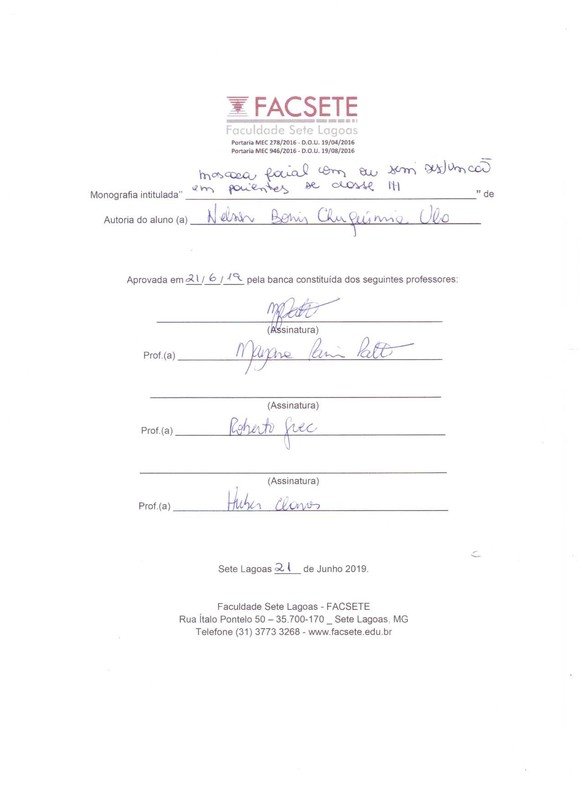 FACSETE
Faculdade Sete Lagoas
Portaria MEC 278/2016 - D.O.U. 19/04/2016
Portaria MEC 946/2016 - D.O.U. 19/08/2016
facial com ou sem disjuncão
Monografia intitulada" em pacientes de classe III " de
Autoria do aluno (a) Nelson
Aprovada em 21/6/19 pela banca constituída dos seguintes professores:
(Assinatura)
Prof.(a)
(Assinatura)
Prof.(a) Roberto Grec
(Assinatura)
Prof.(a) Huber Claros
Sete Lagoas 21 de Junho 2019.
Faculdade Sete Lagoas - FACSETE
Rua Ítalo Pontelo 50 – 35.700-170 _ Sete Lagoas, MG
Telefone (31) 3773 3268 - www.facsete.edu.br